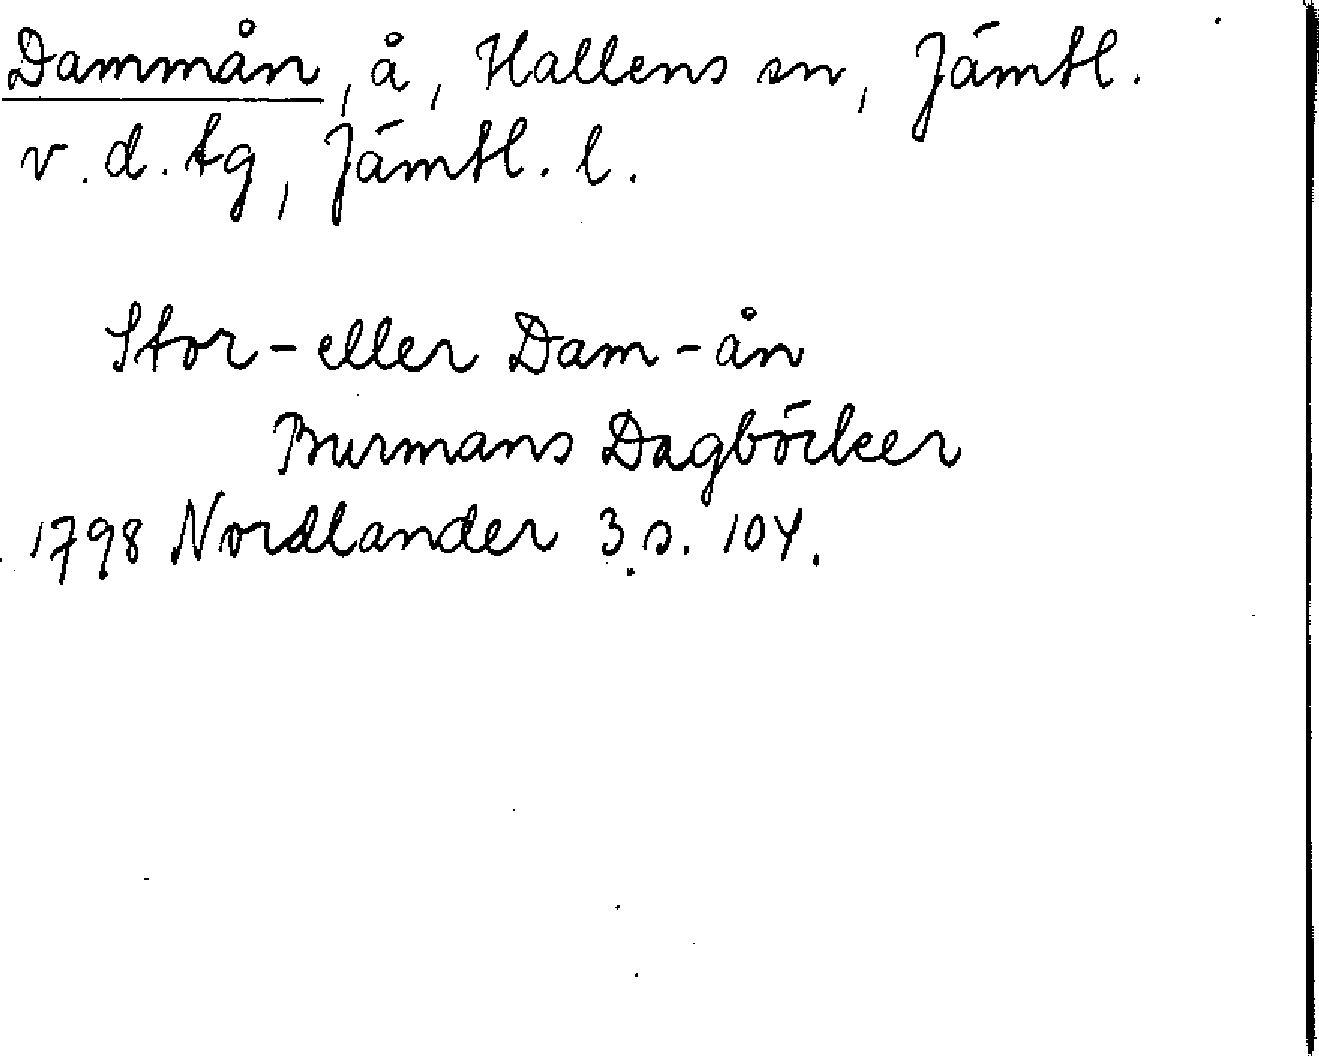 Dammån, å, Hallens sn, Jämtl.
v. d. tg, Jämtl. l.
Stor- eller Dam-ån
Burmans Dagböcker
1798 Nordlander 3 s. 104.